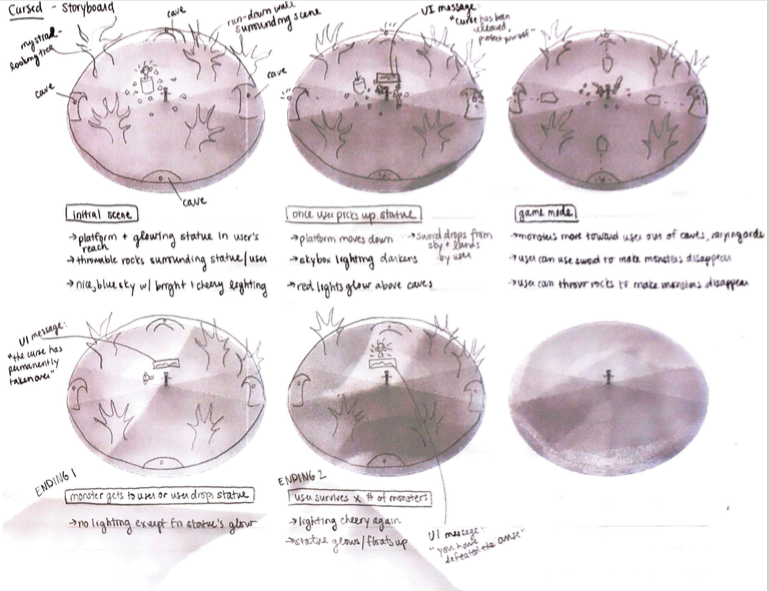 Cursed - Storyboard
mystical-
looking tree
cave
run-down wall
surrounding scene
cave
cave
cave
UI message:
"curse has been
released,
protect yourself"
initial scene
→platform + glowing statue in user's
reach
→throwable rocks surrounding statue/user
→nice, blue sky w/ bright + cheery lighting
once user picks up statue
→platform moves down
→skybox lighting darkens
→red lights glow above caves
→sword drops from
sky + lands
by user
game mode
→monsters move toward user out of caves, varying
→user can use sword to make monsters disappear
→user can throw rocks to make monsters disappear
UI message:
"the curse has
permanently
taken over"
ENDING 1
monster gets to user or user drops statue
→no lighting except fn statue's glow
ENDING 2
user survives x # of monsters
→lighting cheery again
→statue glows/floats up
UI message:
"you have
defeated the curse"